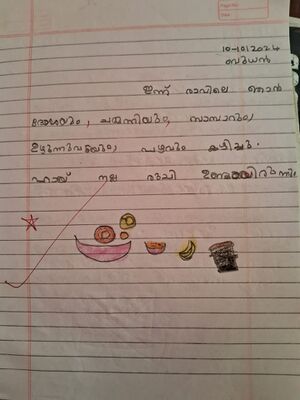 Page No.
Date
10-10-2024
ബുധൻ
ഇന്ന് രാവിലെ ഞാൻ
ദോശയും, ചമ്മന്തിയും, സാമ്പാറും,
ഉഴുന്നുവടയും, പഴവും കഴിച്ചു.
ഹായ് നല്ല രുചി ഉണ്ടായിരുന്നു.